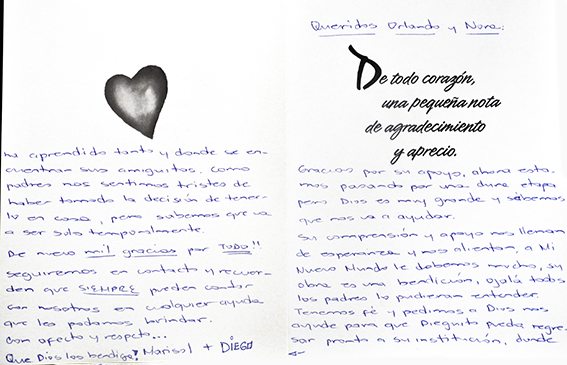 Queridos Orlando y Nora:
De todo corazón,
una pequeña nota
de agradecimiento
y aprecio.
Gracias por su apoyo, ahora esta-
mos pasando por una dura etapa
pero Dios es muy grande y sabemos
que nos va a ayudar.
Su comprensión y apoyo nos llenan
de esperanza y nos alientan, a Mi
Nuevo Mundo le debemos mucho, su
obra es una bendición, ojalá todos
los padres lo pudieran entender.
Tenemos fé y pedimos a Dios nos
ayude para que Dieguito pueda regre-
sar pronto a su institución, donde
ha aprendido tanto y donde se en-
cuentran sus amiguitos. Como
padres nos sentimos tristes de
haber tomado la decisión de tener-
lo en casa, pero sabemos que va
a ser solo temporalmente.
De nuevo mil gracias por TODO!!
seguiremos en contacto y recuer-
den que SIEMPRE pueden contar
con nosotros en cualquier ayuda
que les podamos brindar.
Con afecto y respeto...
Que Dios los bendiga! Marisol + DIEGO